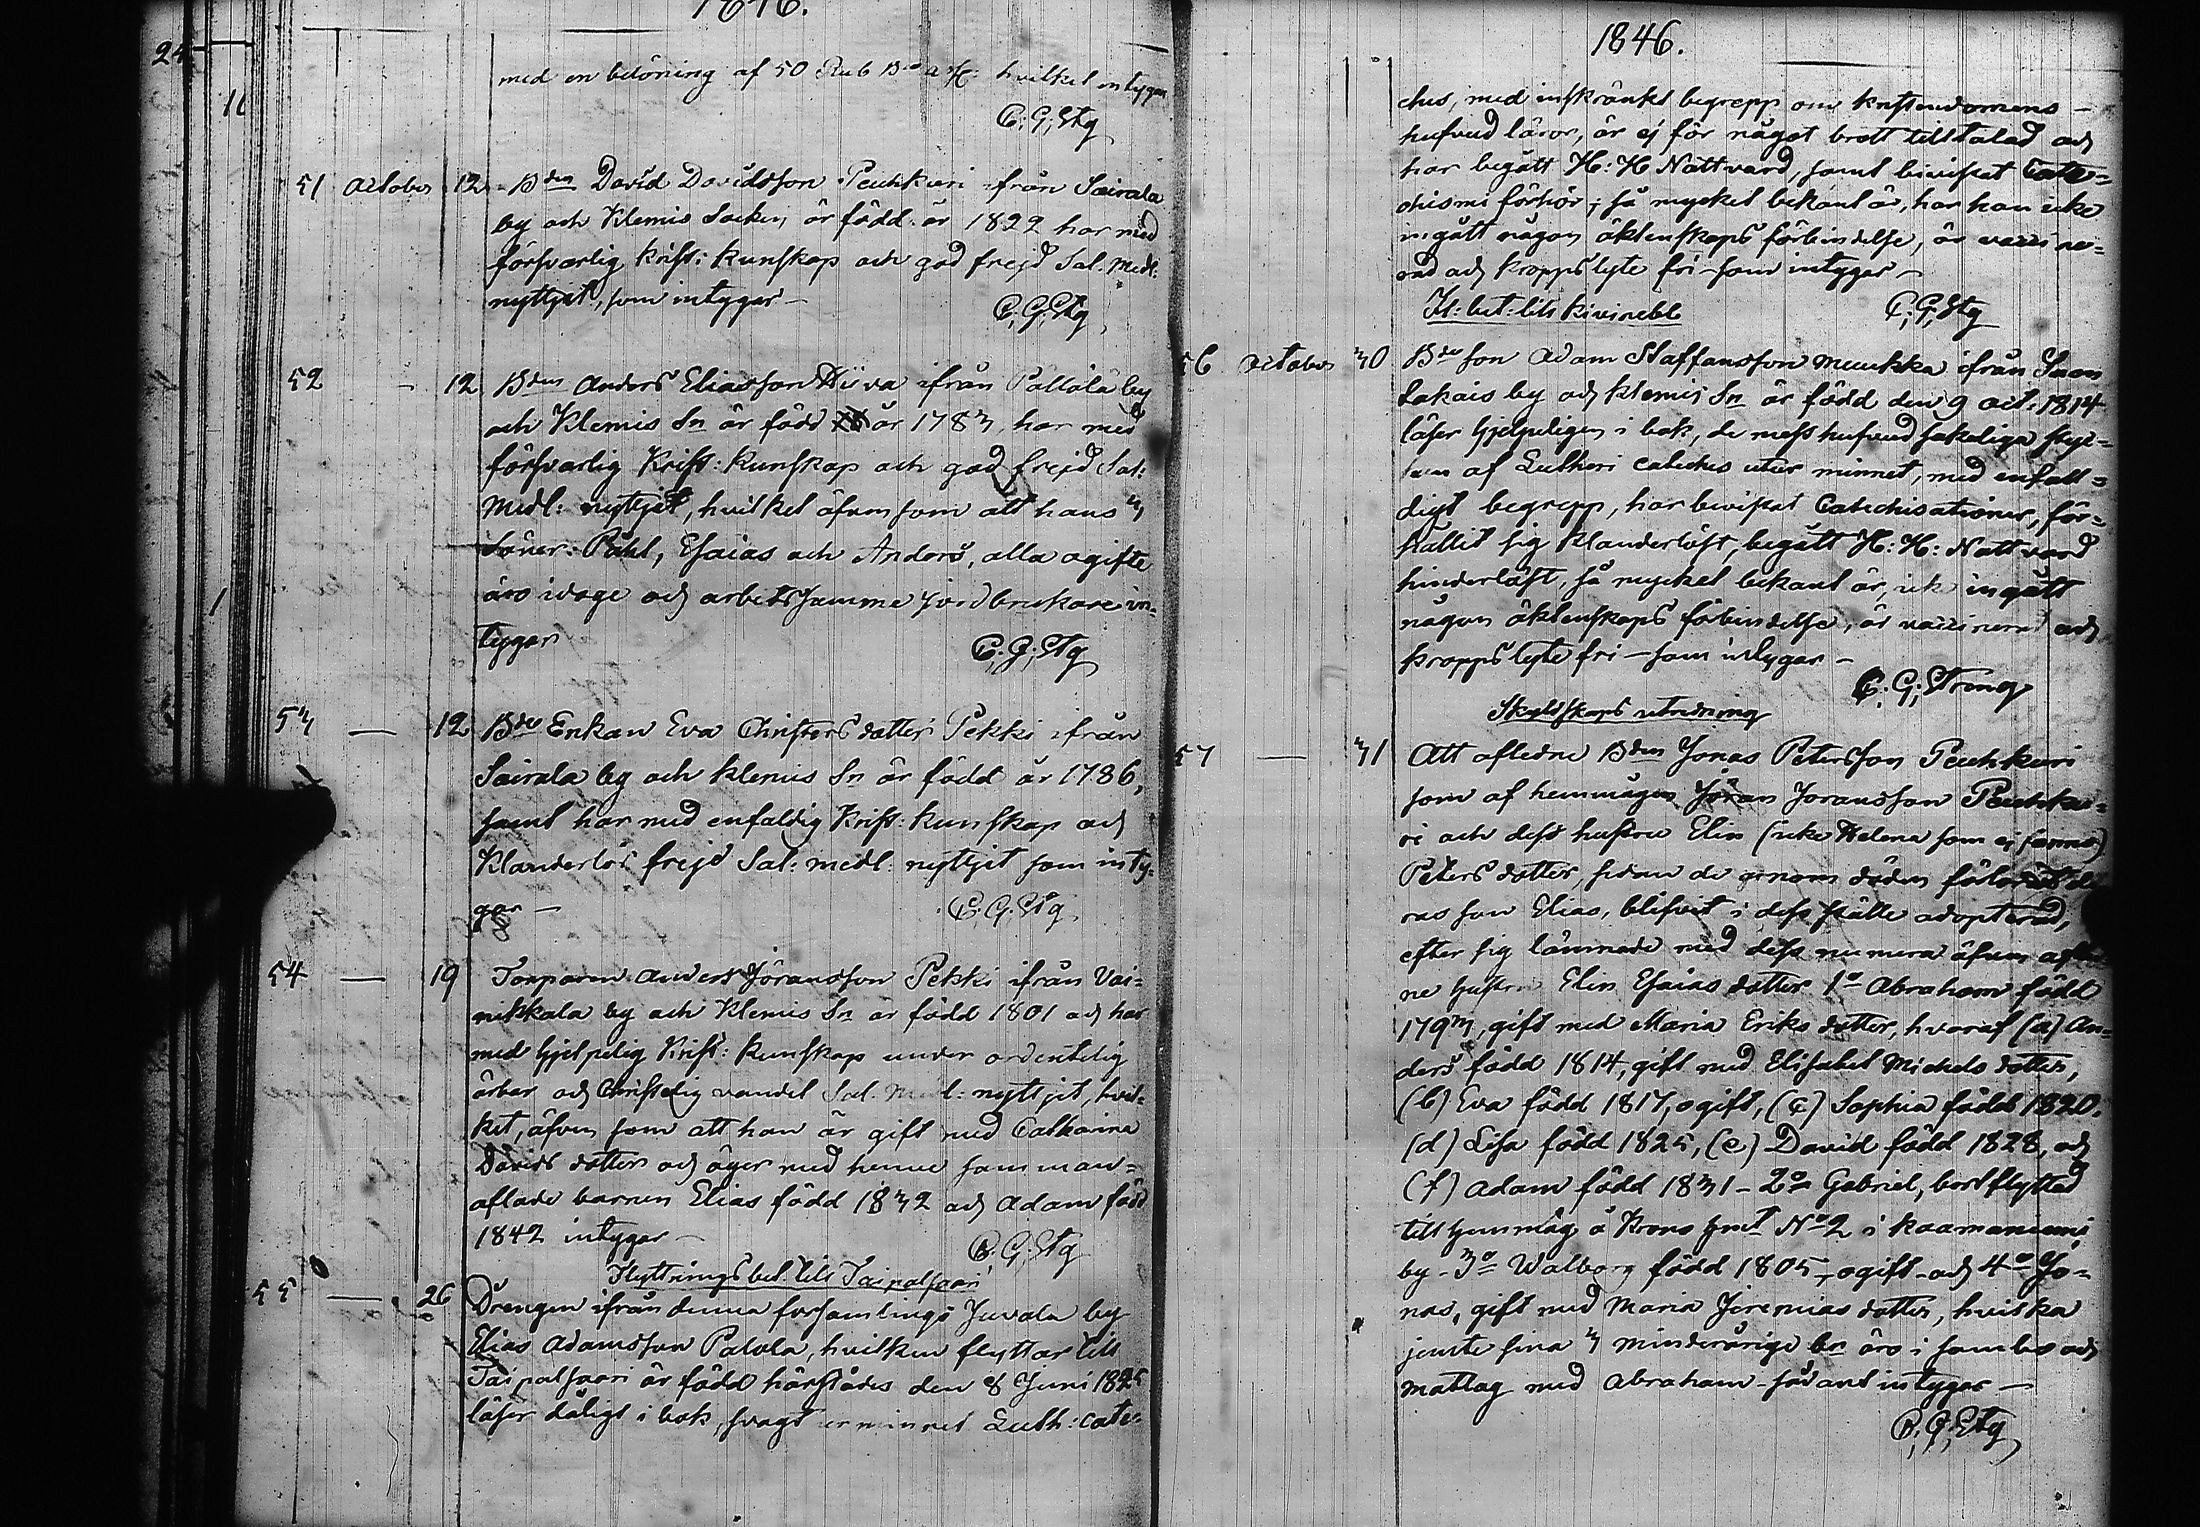 1846.
24
11
med en belöning af 50 Rub B:co a:st: hvilket intygar
C: G; Stg
51 October 12 Bden David Davidsson Peuhkuri ifrån Sairala
by och Klemis Socken är född år 1822 har med
försvarlig krist: kunskap och god frejd Sal. Medl:
nyttjat, som intygar –
C; G; Stg
52 – 12 Bden Anders Eliasson Hiiva ifrån Pällälä by
och Klemis Sn är född år 1783, har med
försvarlig Krist: kunskap och god frejd Sal:
Medl: nyttjat, hvilket äfvensom att hans 3
Söner: Påhl, Esaias och Anders, alla ogifte
äro idoge och arbetssamme jordbrukare in-
tygar
C; G; Stg
53 — 12 Bde Enkan Eva Christersdotter Pekki ifrån
Sairala by och Klemis Sn är född år 1786,
samt har med enfaldig Krist: kunskap och
Klanderlös frejd Sal: medl: nyttjat som inty-
gar –
C. G. Stg.
54 — 19 Torparen Anders Jöransson Pekki ifrån Vai-
nikkala by och Klemis Sn är född 1801 och har
med hjelpelig Krist: kunskap under ordentelig
ärbar och Christelig vandel Sal. Medl: nyttjat, hvil-
ket, äfven som att han är gift med Catharina
Davids dotter och äger med henne samman-
aflade barnen Elias född 1832 och Adam född
1842 intygar –
C. G; Stg
Flyttningsbet. till Taipalsaari
55 — 26 Drengen ifrån denna församlings Juvala by
Elias Adamsson Palola, hvilken flyttar till
Taipalsaari är född härstädes den 8 Juni 1825
läser dåligt i bok, svagt ur minnet Luth: cate-
1846.
ches, med inskränkt begrepp om kristendomens
hufvud läror, är ej för något brott tilltalad och
har begått H: H Nattvard, samt bevistat Cate-
chismi förhör; så mycket bekant är, har han icke
ingått någon äktenskaps förbindelse, är vaccine-
rad och kroppslyte fri – som intygar –
Fl: bet: till Kivinebb
C; G; Stg
56 October 30 Bde son Adam Staffansson Muukka ifrån Suon
lakais by och Klemis Sn är född den 9 oct: 1814
läser hjelpeligen i bok, de mest hufvudsakeliga styc-
ken af Lutheri catechis utur minnet, med enfall-
digt begrepp, har bevistat Catechisationer, för-
hållit sig klanderlöst, begått H: H: Nattvard
hinderlöst, så mycket bekant är, ick ingått
någon äktenskaps förbindelse, är vaccinerad och
kroppslyte fri – som intygar –
C: G; Strong
Skyldskaps utredning
57 — 31 Att aflidne Bden Jonas Petersson Peuhkuri
som af hemmågen Jöran Joransson Peuhku-
ri och dess hustru Elin (icke Helena som ej fanns)
Peters dotter, sedan de genom döden förlorat de-
ras son Elias, blifvit i dess ställe adopterad,
efter sig lämnade med dess numera äfven aflid
ne hustru Elin Esaias dotter 1o Abraham född
1793, gift med Maria Eriks dotter, hvaraf (a) An-
ders född 1814, gift med Elisabet Michels dotter,
(b) Eva född 1817, ogift, (c) Sophia född 1820.
(d) Lisa född 1825, (e) David född 1828, och
(f) Adam född 1831 – 2o Gabriel, bortflyttad
till hemmåg å Krono hmt No 2 i Kaamaniemi
by – 3o Walborg född 1805, ogift – och 4o Jo-
nas, gift med Maria Jeremias dotter, hvilka
jemte sina 3 minderårige br äro i sambo och
matlag med Abraham – sådant intygar –
C; G; Stg